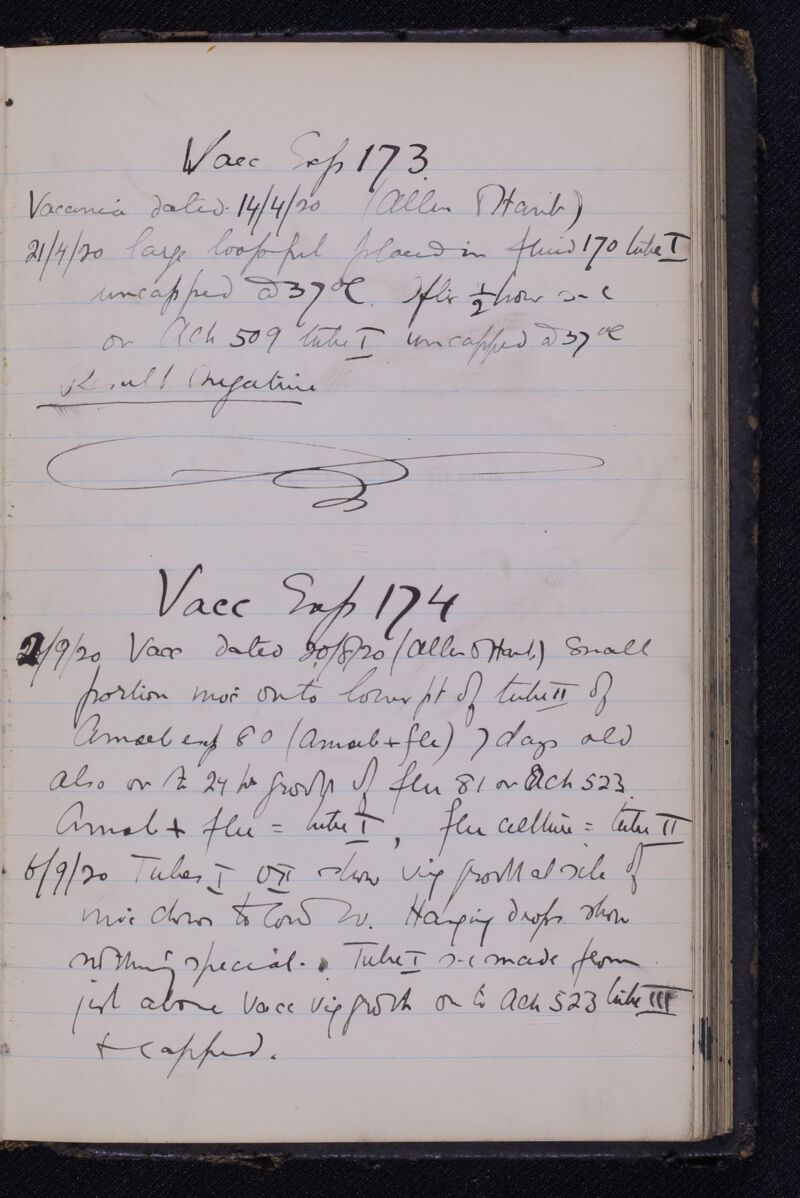 Vacc Exp 173.
Vaccinia dated 14/4/20 (Allen & Hanb)
21/4/20 large loopful placed in fluid 170 tube I
uncapped @ 37°C. After ½ hour s-c
on Ach 509 tube I uncapped @ 37°C
Result Negative
Vacc Exp 174
2/9/20 Vacc dated 20/8/20 (Allen & Hanb.) Small
portion inoc onto lower pt of tube II of
Amoeb exp 80 (Amoeb + flu) 7 days old
also on to 24 hr growth of flu 81 on Ach 523.
Amoeb + flu = tube I, flu culture = tube II
6/9/20 Tubes I & II show vig growth at site of
inoc down to cond w. Hanging drops show
nothing special. Tube I s-c made from
just above Vacc vig growth on to Ach 523 tube III
& capped.